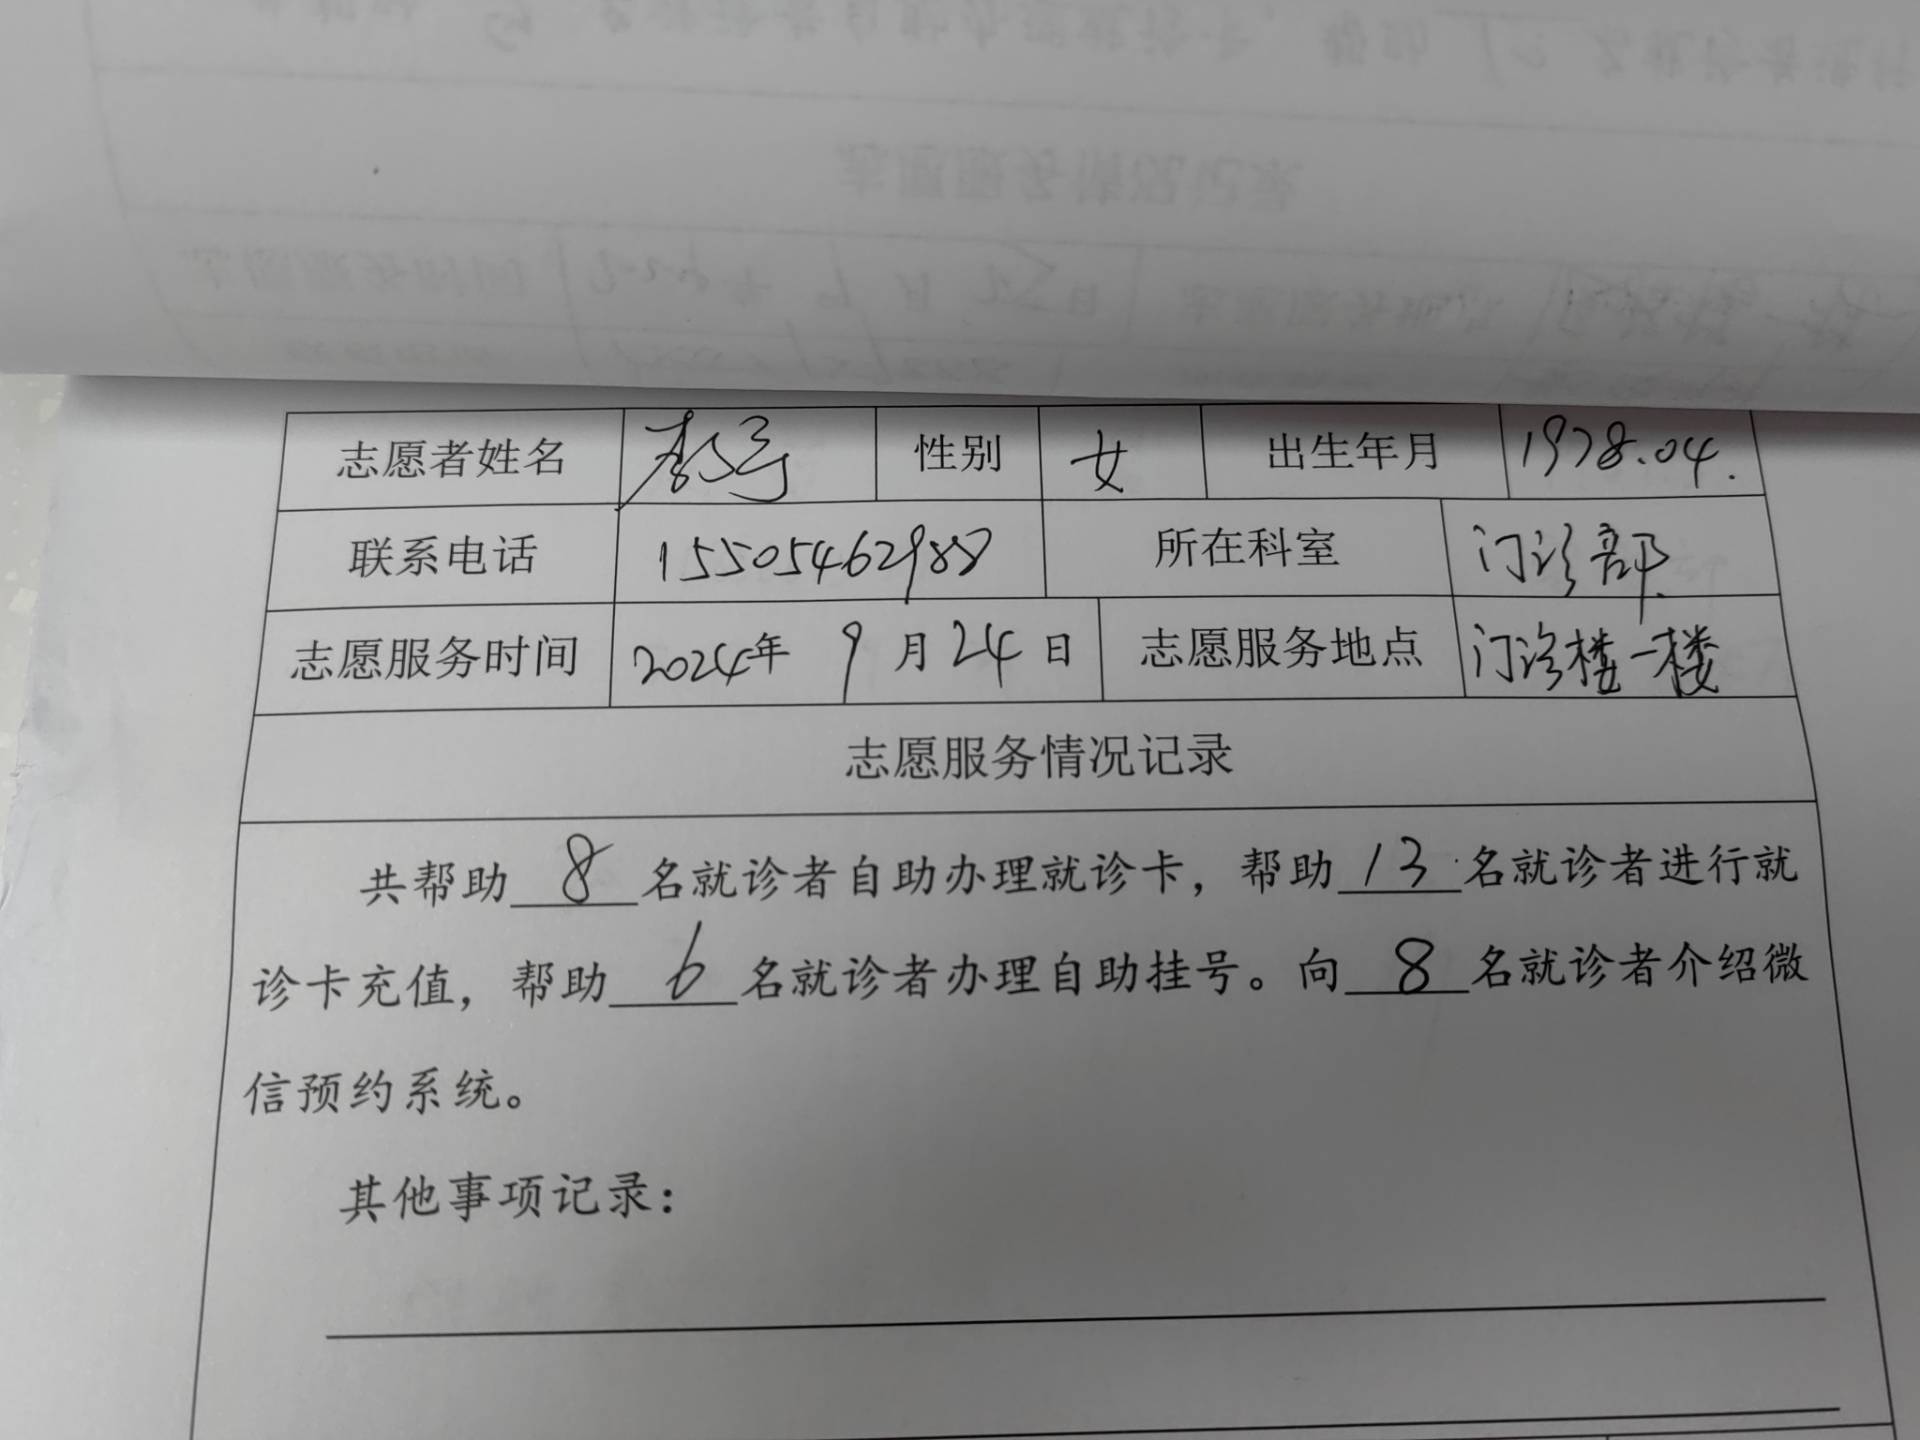 志愿者姓名 性别 女 出生年月 1978.04.
联系电话 15505462988 所在科室 门诊部
志愿服务时间 2024年 9月24日 志愿服务地点 门诊楼一楼
志愿服务情况记录
共帮助 8 名就诊者自助办理就诊卡，帮助 13 名就诊者进行就
诊卡充值，帮助 6 名就诊者办理自助挂号。向 8 名就诊者介绍微
信预约系统。
其他事项记录：